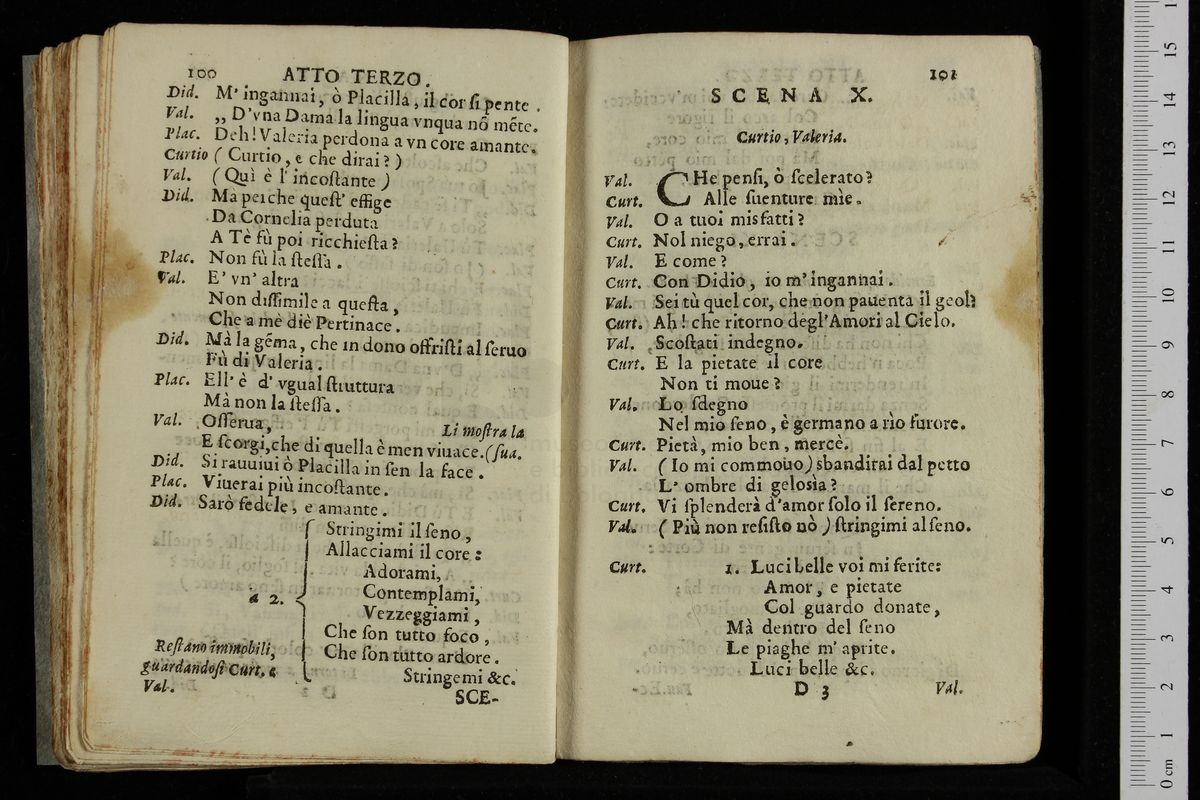 100 ATTO TERZO.
Did. M' ingannai, ò Placilla, il cor ſi pente.
Val. „ D'vna Dama la lingua vnqua nõ mẽte.
Plac. Deh! Valeria perdona a vn core amante.
Curtio ( Curtio, e che dirai? )
Val. ( Quì è l' incoſtante )
Did. Mà perche queſt' effige
Da Cornelia perduta
A Tè fù poi ricchieſta?
Plac. Non fù la ſteſſa.
Val. E' vn' altra
Non diſſimile a queſta,
Che a mè diè Pertinace.
Did. Mà la gẽma, che in dono offriſti al ſeruo
Fù di Valeria.
Plac. Ell' è d' vgual ſtruttura
Mà non la ſteſſa.
Val. Oſſerua, Li moſtra la
E ſcorgi, che di quella è men viuace. (ſua.
Did. Si rauuiui ò Placilla in ſen la face.
Plac. Viuerai più incoſtante.
Did. Sarò fedele, e amante.
Stringimi il ſeno,
Allacciami il core:
Adorami,
à 2. Contemplami,
Vezzeggiami,
Che ſon tutto foco,
Reſtano immobili, Che ſon tutto ardore.
guardandoſi Curt. e Stringemi &c.
Val.
SCE-
101
SCENA X.
Curtio, Valeria.
Val. CHe penſi, ò ſcelerato?
Curt. Alle ſuenture mìe.
Val. O a tuoi misfatti?
Curt. Nol niego, errai.
Val. E come?
Curt. Con Didio, io m' ingannai.
Val. Sei tù quel cor, che non pauenta il geol?
Curt. Ah! che ritorno degl'Amori al Cielo.
Val. Scoſtati indegno.
Curt. E la pietate il core
Non ti moue?
Val. Lo ſdegno
Nel mio ſeno, è germano a rìo furore.
Curt. Pietà, mio ben, mercè.
Val. ( Io mi commouo) sbandirai dal petto
L' ombre di gelosìa?
Curt. Vi ſplenderà d'amor ſolo il ſereno.
Val. ( Più non reſiſto nò ) ſtringimi al ſeno.
Curt. 1. Luci belle voi mi ferite:
Amor, e pietate
Col guardo donate,
Mà dentro del ſeno
Le piaghe m' aprite.
Luci belle &c.
D 3 Val.